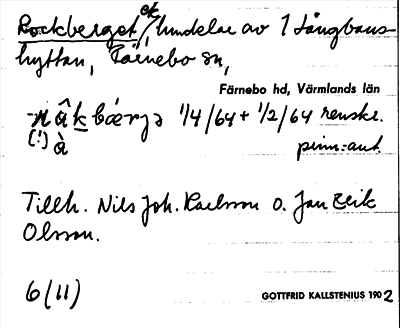 Rockberget ek,/hundelar av 1 Långbans-
hyttan, Färnebo sn,
Färnebo hd, Värmlands län
-nåkbærjə 1/4/64 + 1/2/64
(!) à
Tillh. Nils Joh. Karlsson o. Jan Erik
Olsson.
6(11)
GOTTFRID KALLSTENIUS 1902